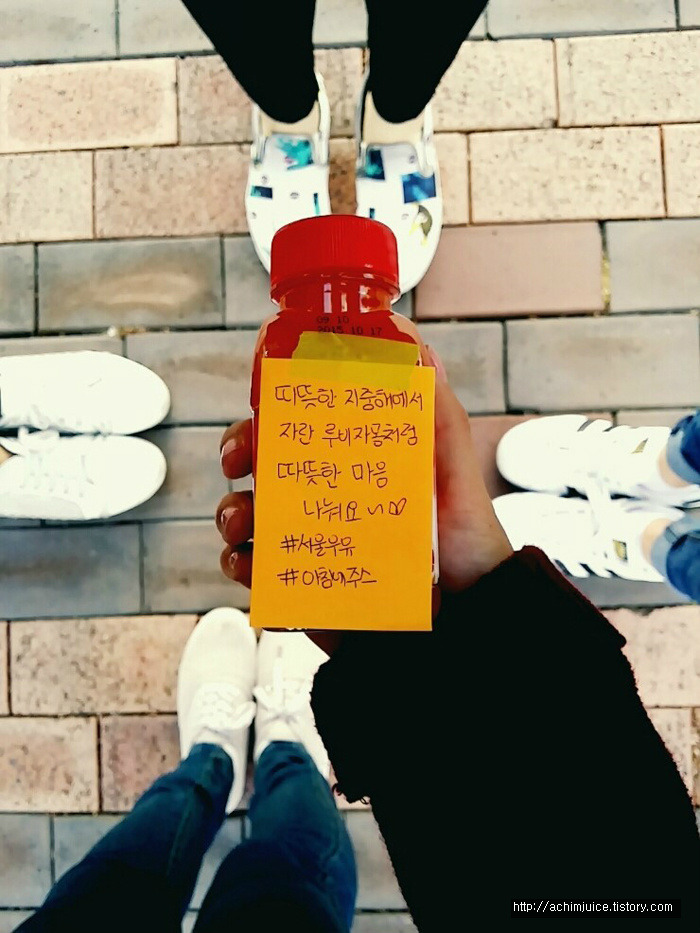 09 10
2015 10 17
띠뜻한 지중해에서
자란 루비자몽처럼
따뜻한 마음
나눠요 ~♡
#서울우유
#아침에주스
http://achimjuice.tistory.com